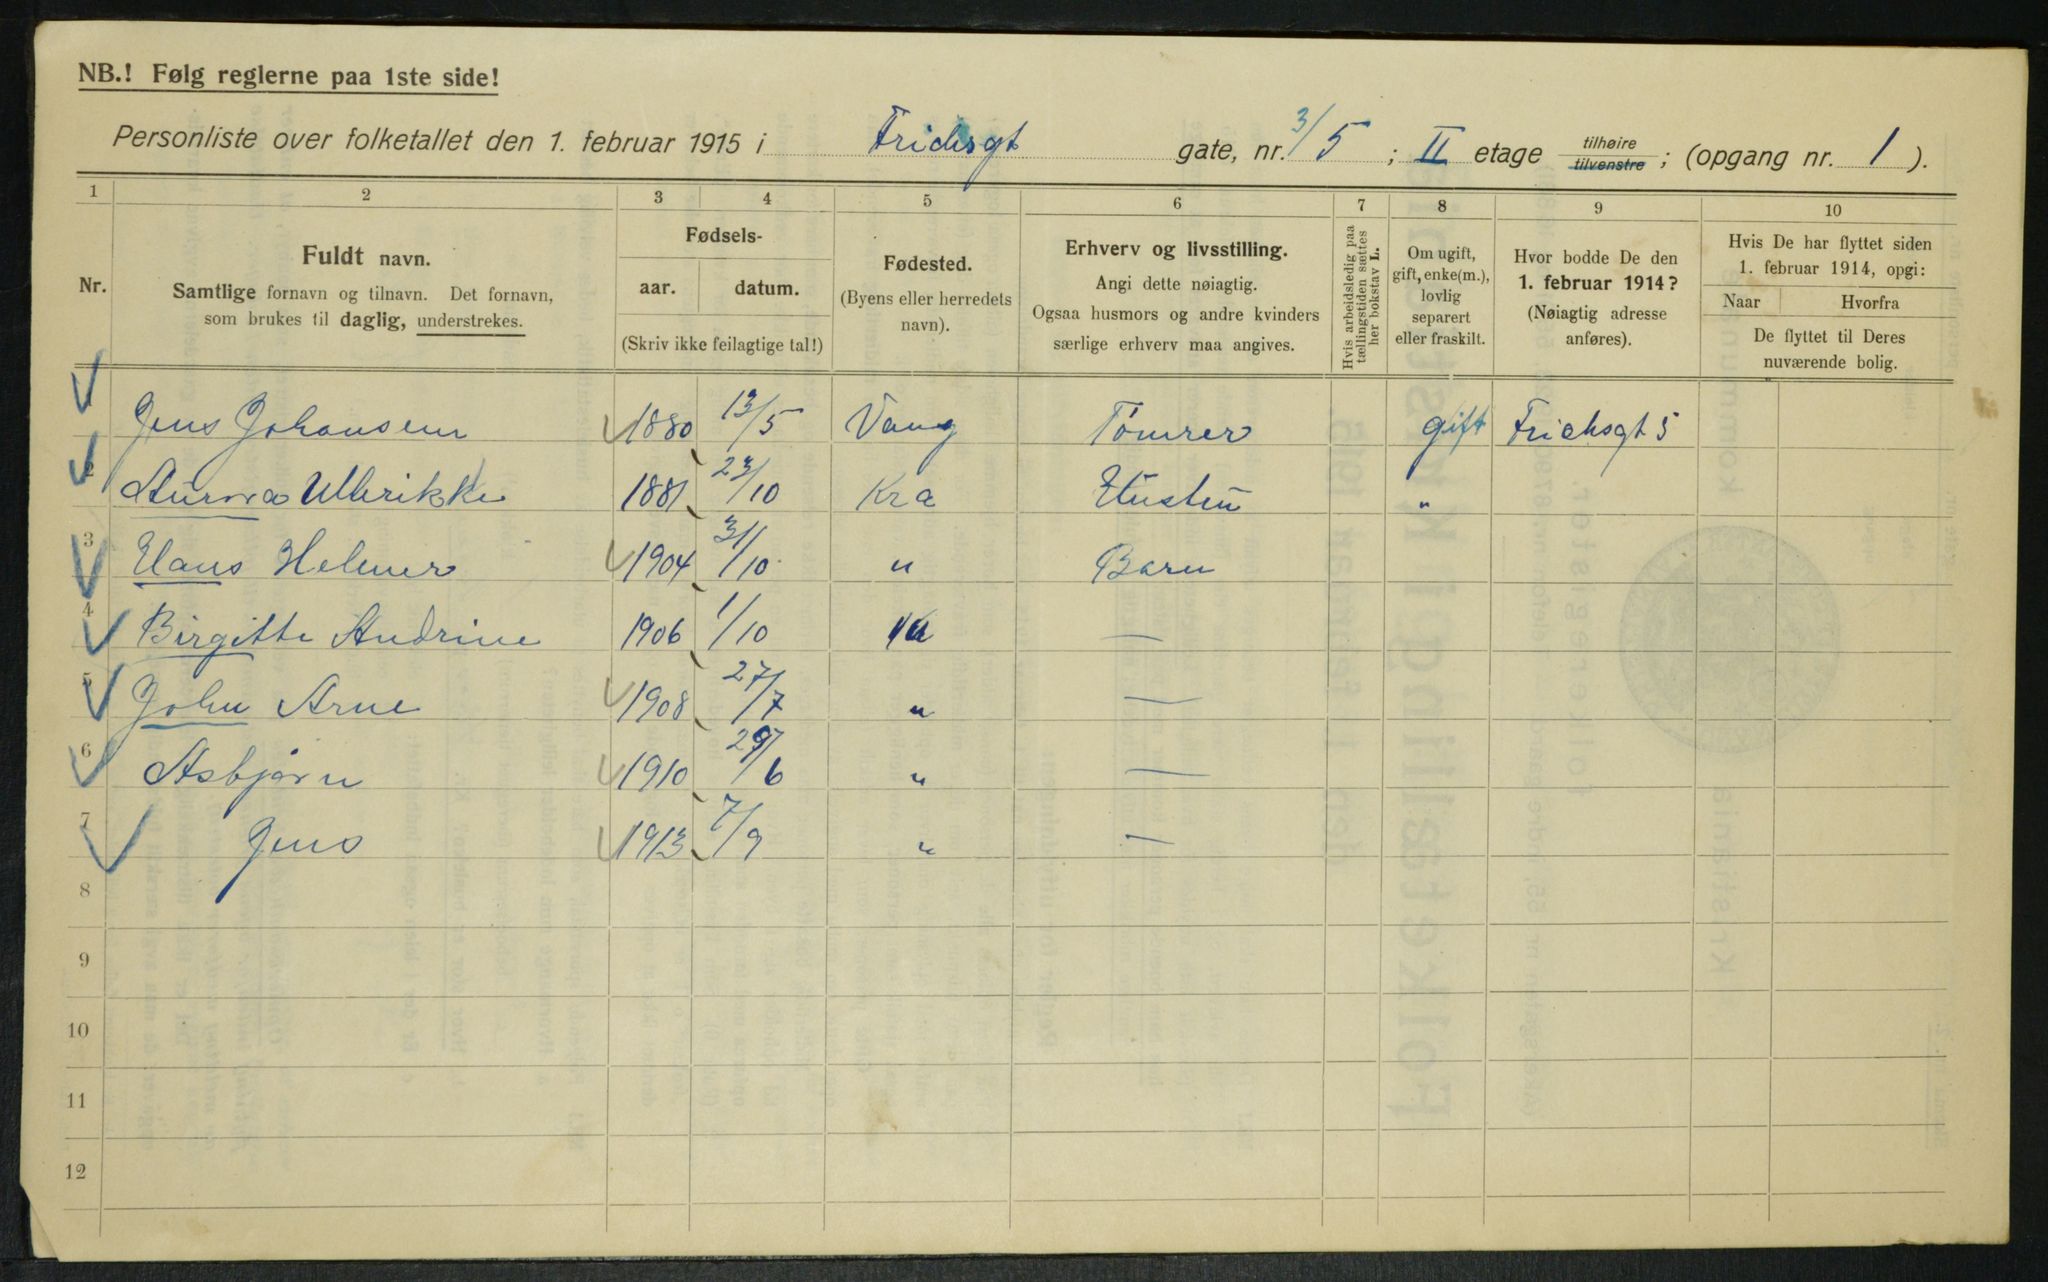 NB.! Følg reglerne paa 1ste side!
Personliste over folketallet den 1. februar 1915 i Frichsgt gate, nr. 3/5 ; II etage tilhøire tilvenstre ; (opgang nr. 1 ).
1 2 3 4 5 6 7 8 9 10
Nr.
Fuldt navn.
Samtlige fornavn og tilnavn. Det fornavn,
som brukes til daglig, understrekes.
Fødsels-
aar. datum.
(Skriv ikke feilagtige tal!)
Fødested.
(Byens eller herredets
navn).
Erhverv og livsstilling.
Angi dette nøiagtig.
Ogsaa husmors og andre kvinders
særlige erhverv maa angives.
Hvis arbeidsledig paa
tællingstiden sættes
her bokstav L.
Om ugift,
gift, enke(m.),
lovlig
separert
eller fraskilt.
Hvor bodde De den
1. februar 1914?
(Nøiagtig adresse
anføres).
Hvis De har flyttet siden
1. februar 1914, opgi:
Naar Hvorfra
De flyttet til Deres
nuværende bolig.
Jens Johansen 1880 13/5 Vang Tömrer gift Frichsgt 5
2 Aurora Ullerikke 1881 23/10 Kra Hustru "
3 Hans Helmer 1904 31/10 " Barn
4 Birgitte Andrine 1906 1/10 —
5 John Arne 1908 27/7 " —
6 Asbjørn 1910 29/6 " —
7 Jens 1913 7/9 " —
8
9
10
11
12